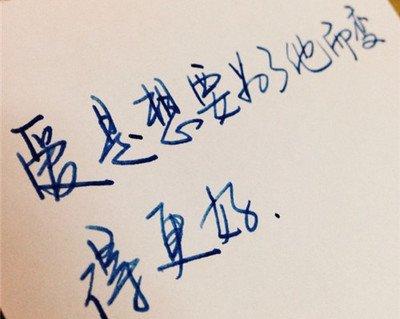 爱是想要为了他而变
得更好.